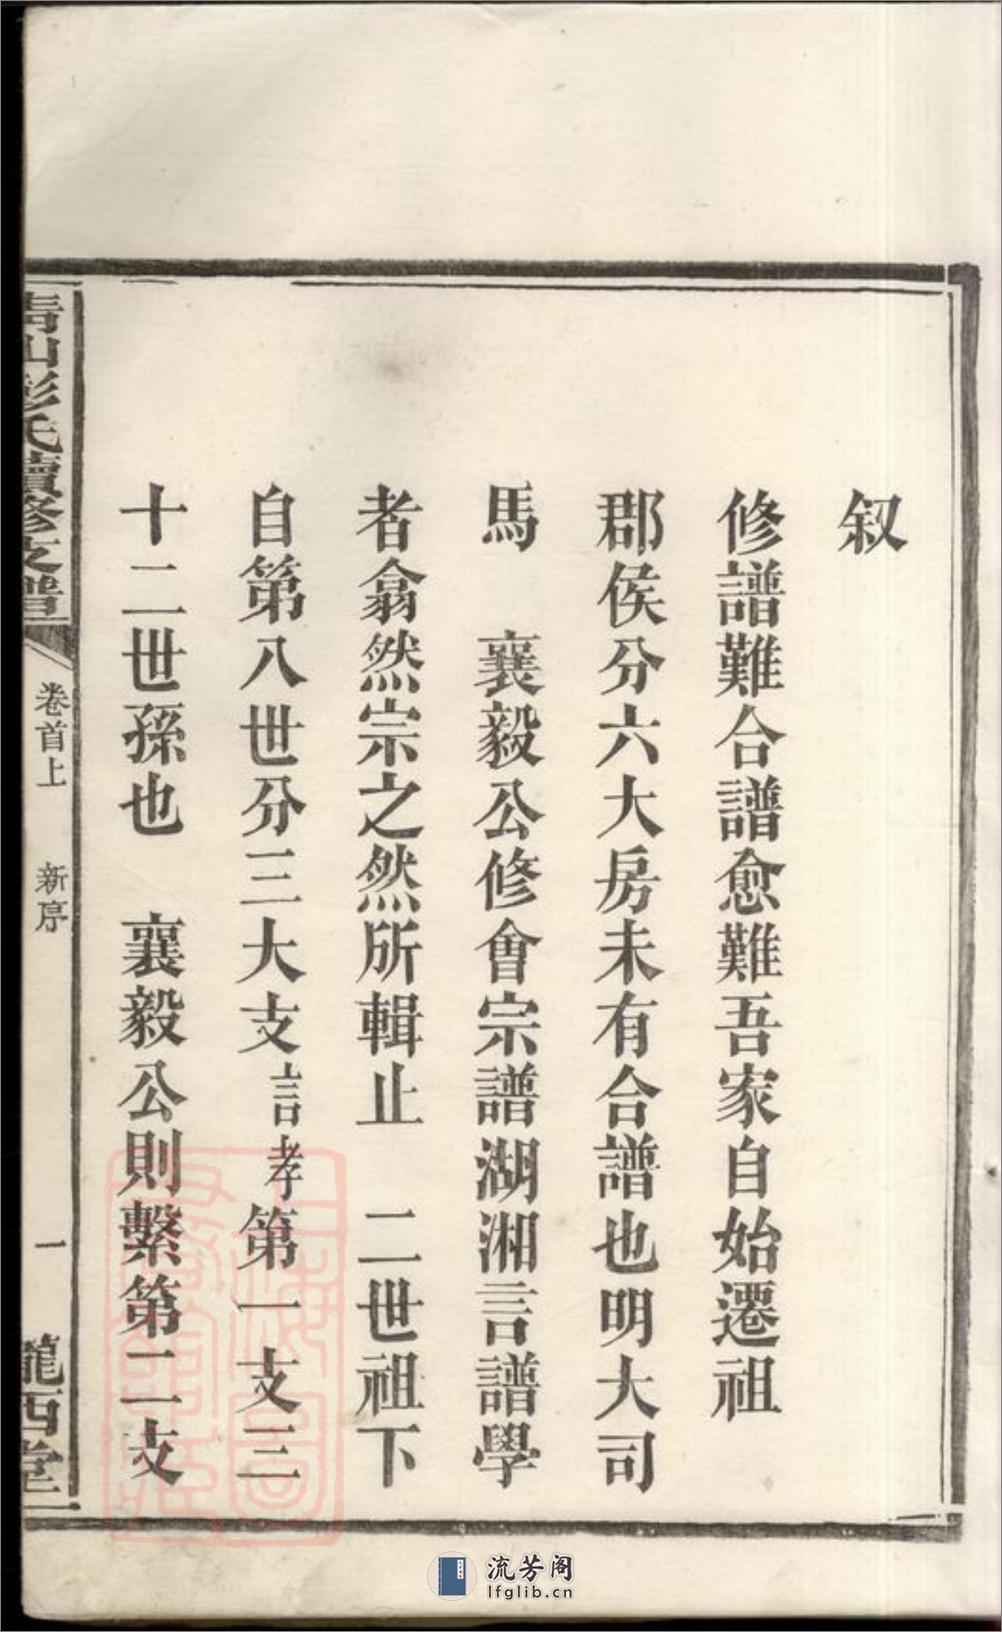 叙
修譜難合譜愈難吾家自始遷祖
郡侯分六大房未有合譜也明大司
馬　襄毅公修會宗譜湖湘言譜學
者翕然宗之然所輯止　二世祖下
自第八世分三大支言孝第一支三
十二世孫也　襄毅公則繫第二支
青山彭氏續修支譜
卷首上　新序
一
隴西堂
流芳阁
lfglib.cn